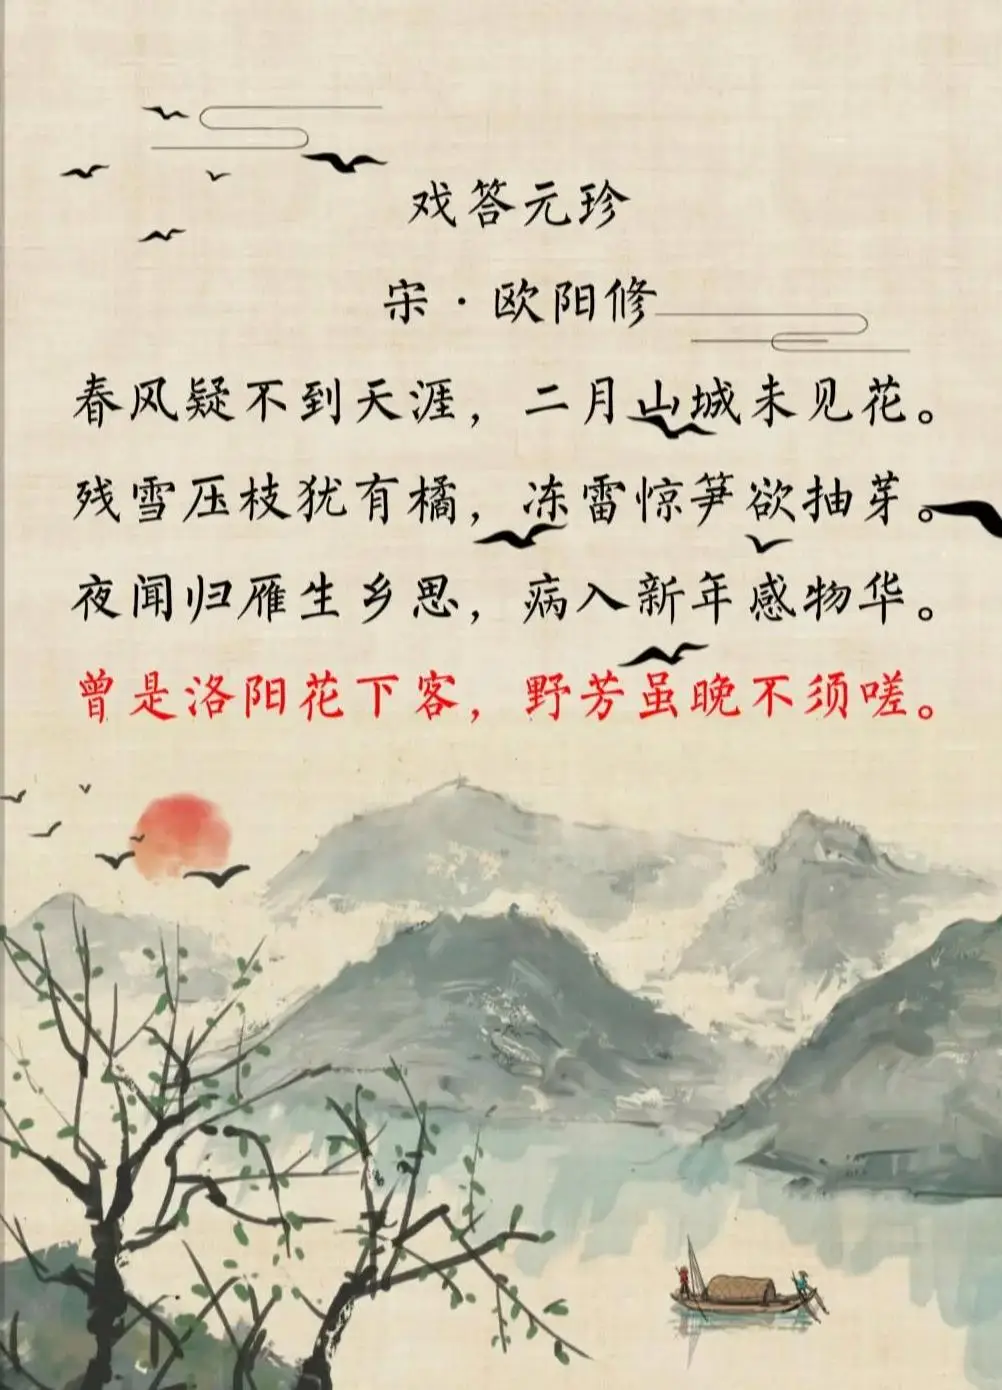 戏答元珍
宋·欧阳修
春风疑不到天涯，二月山城未见花。
残雪压枝犹有橘，冻雷惊笋欲抽芽。
夜闻归雁生乡思，病入新年感物华。
曾是洛阳花下客，野芳虽晚不须嗟。